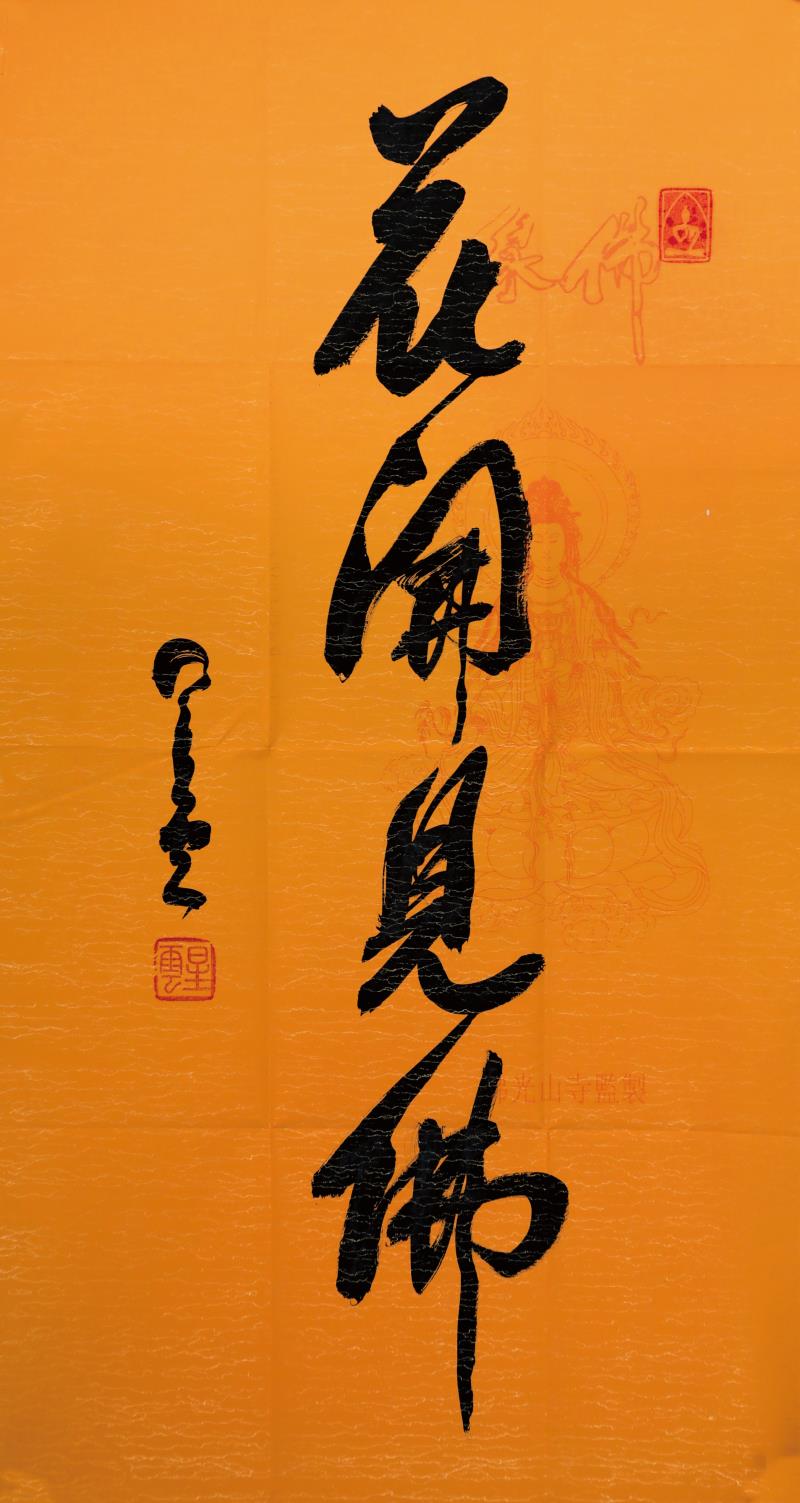 花開見佛
星雲
星雲
佛像
佛光山寺監製